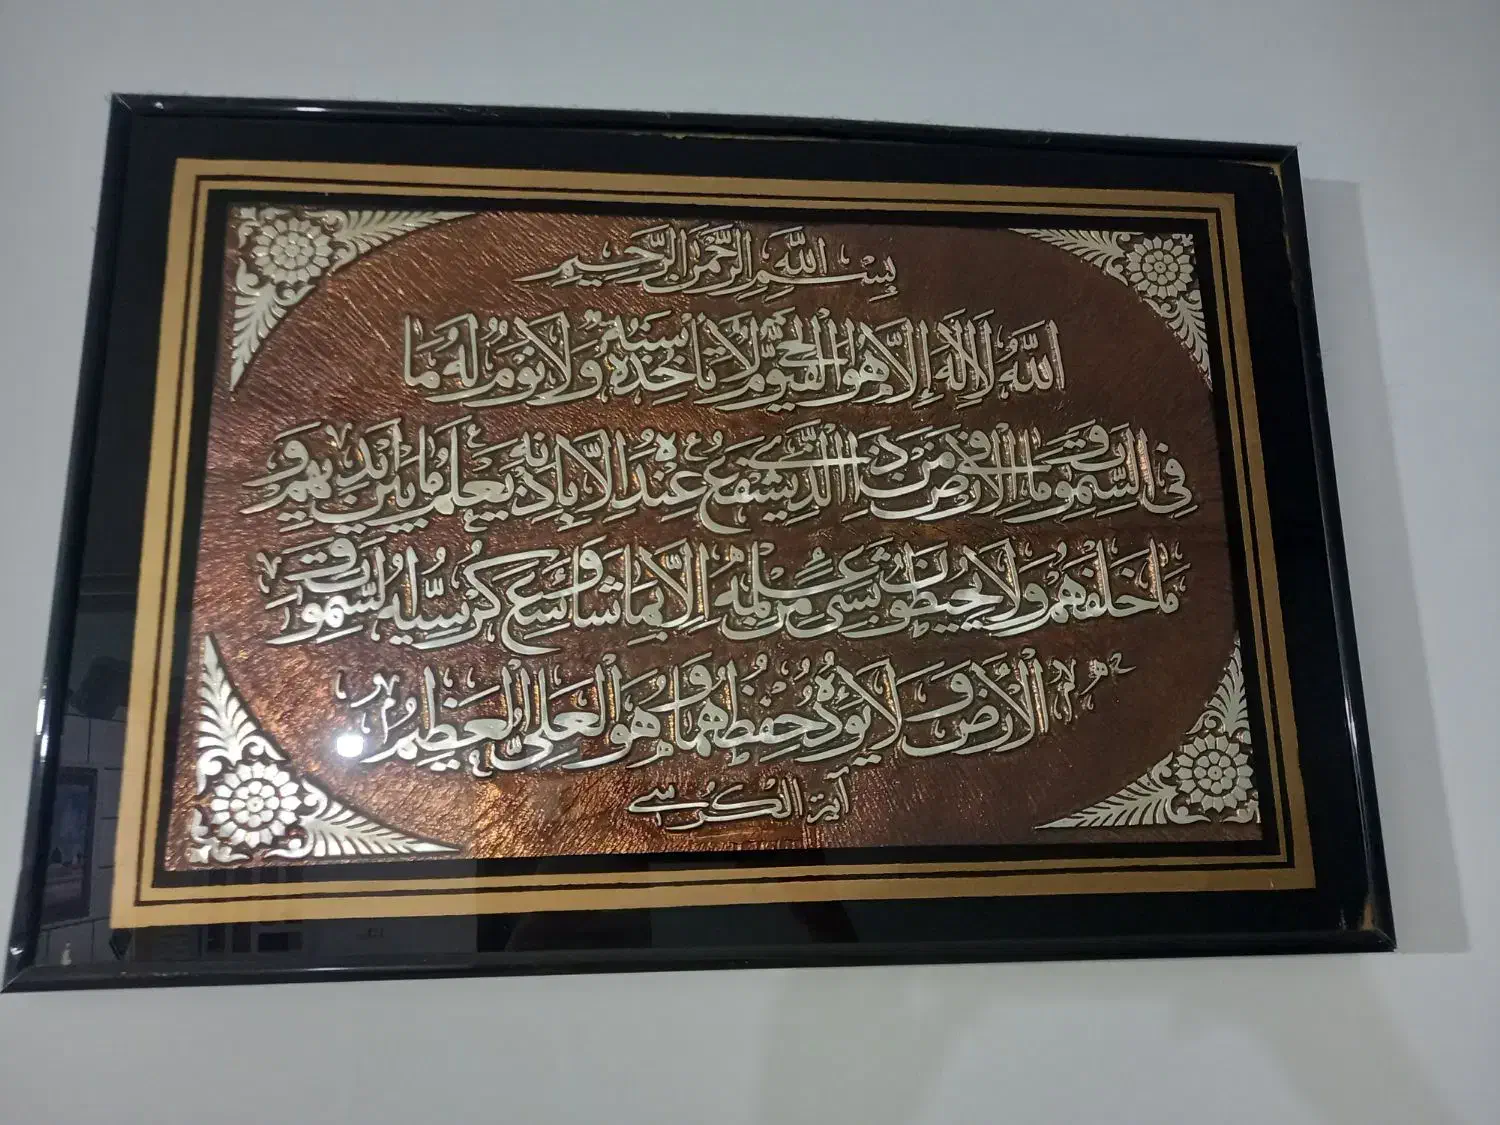 بِسْمِ اللَّهِ الرَّحْمٰنِ الرَّحِيمِ
اللَّهُ لَا إِلٰهَ إِلَّا هُوَ الْحَيُّ الْقَيُّومُ لَا تَأْخُذُهُ سِنَةٌ وَلَا نَوْمٌ لَهُ مَا
فِي السَّمٰوَاتِ وَمَا فِي الْأَرْضِ مَنْ ذَا الَّذِي يَشْفَعُ عِنْدَهُ إِلَّا بِإِذْنِهِ يَعْلَمُ مَا بَيْنَ أَيْدِيهِمْ وَ
مَا خَلْفَهُمْ وَلَا يُحِيطُونَ بِشَيْءٍ مِنْ عِلْمِهِ إِلَّا بِمَا شَاءَ وَسِعَ كُرْسِيُّهُ السَّمٰوَاتِ وَ
الْأَرْضَ وَلَا يَئُودُهُ حِفْظُهُمَا وَهُوَ الْعَلِيُّ الْعَظِيمُ
آية الكرسي